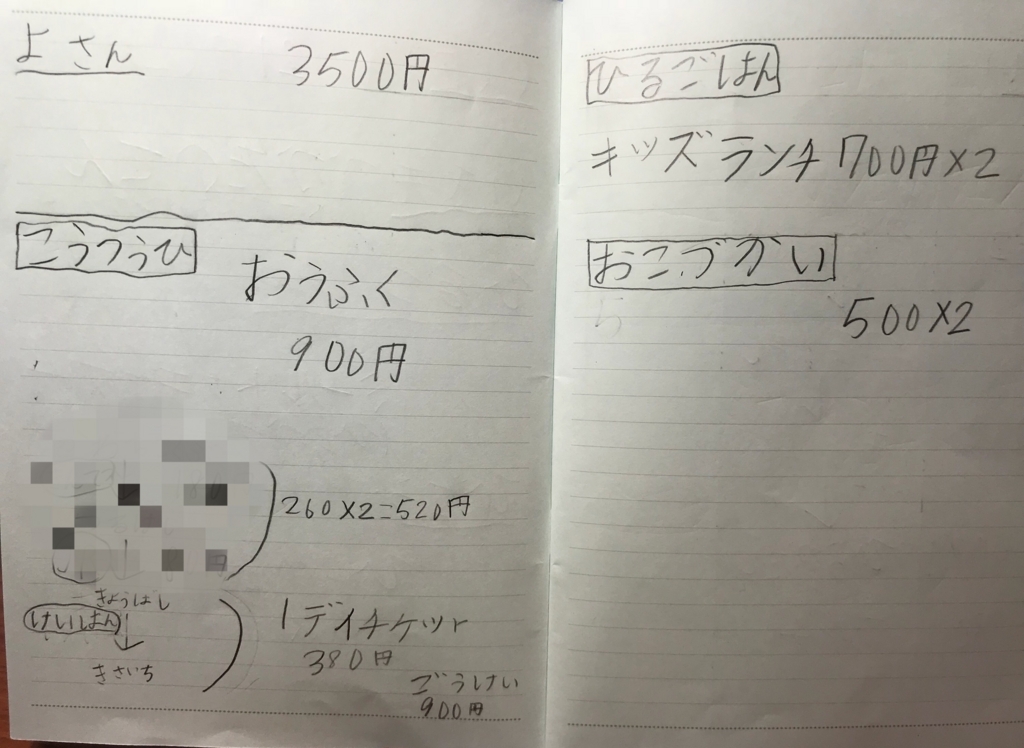 よさん 3500円
こうつうひ
おうふく
900円
260×2=520円
きょうはし
けいはん
↓
きさいち
1デイチケット
380円
ごうけい
900円
ひるごはん
キッズランチ 700円×2
おこづかい
500×2